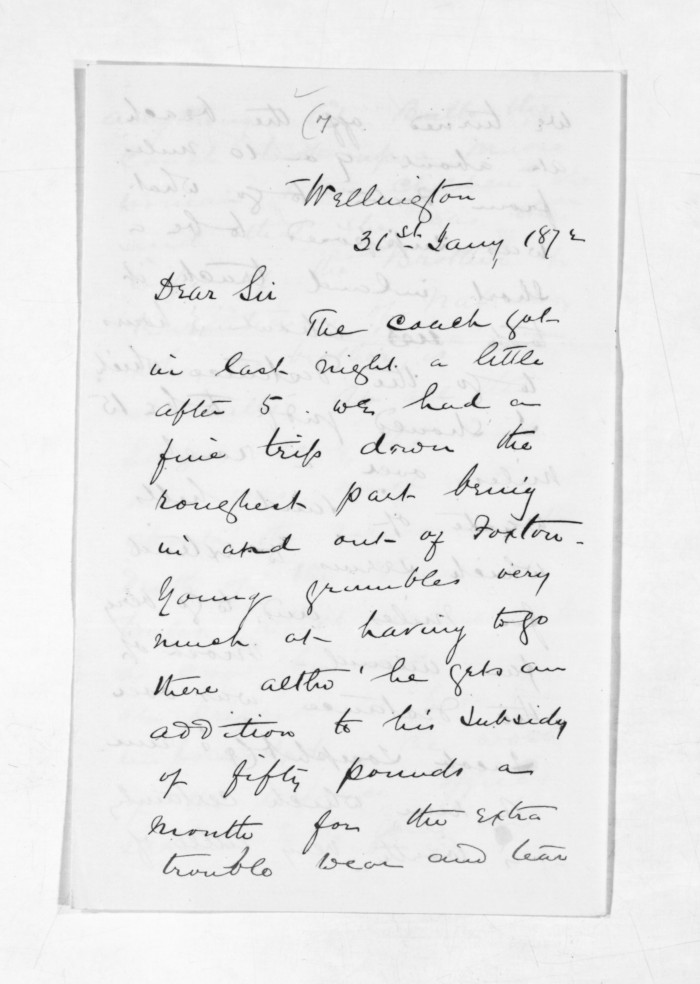 (7
Wellington
31st Jany 1872
Dear Sir
The coach got
in last night a little
after 5. we had a
fine trip down the
roughest part being
in and out of Foxton -
Young grumbles very
much at having to go
there altho' he gets an
addition to his subsidy
of fifty pounds a
month for the extra
trouble wear and tear